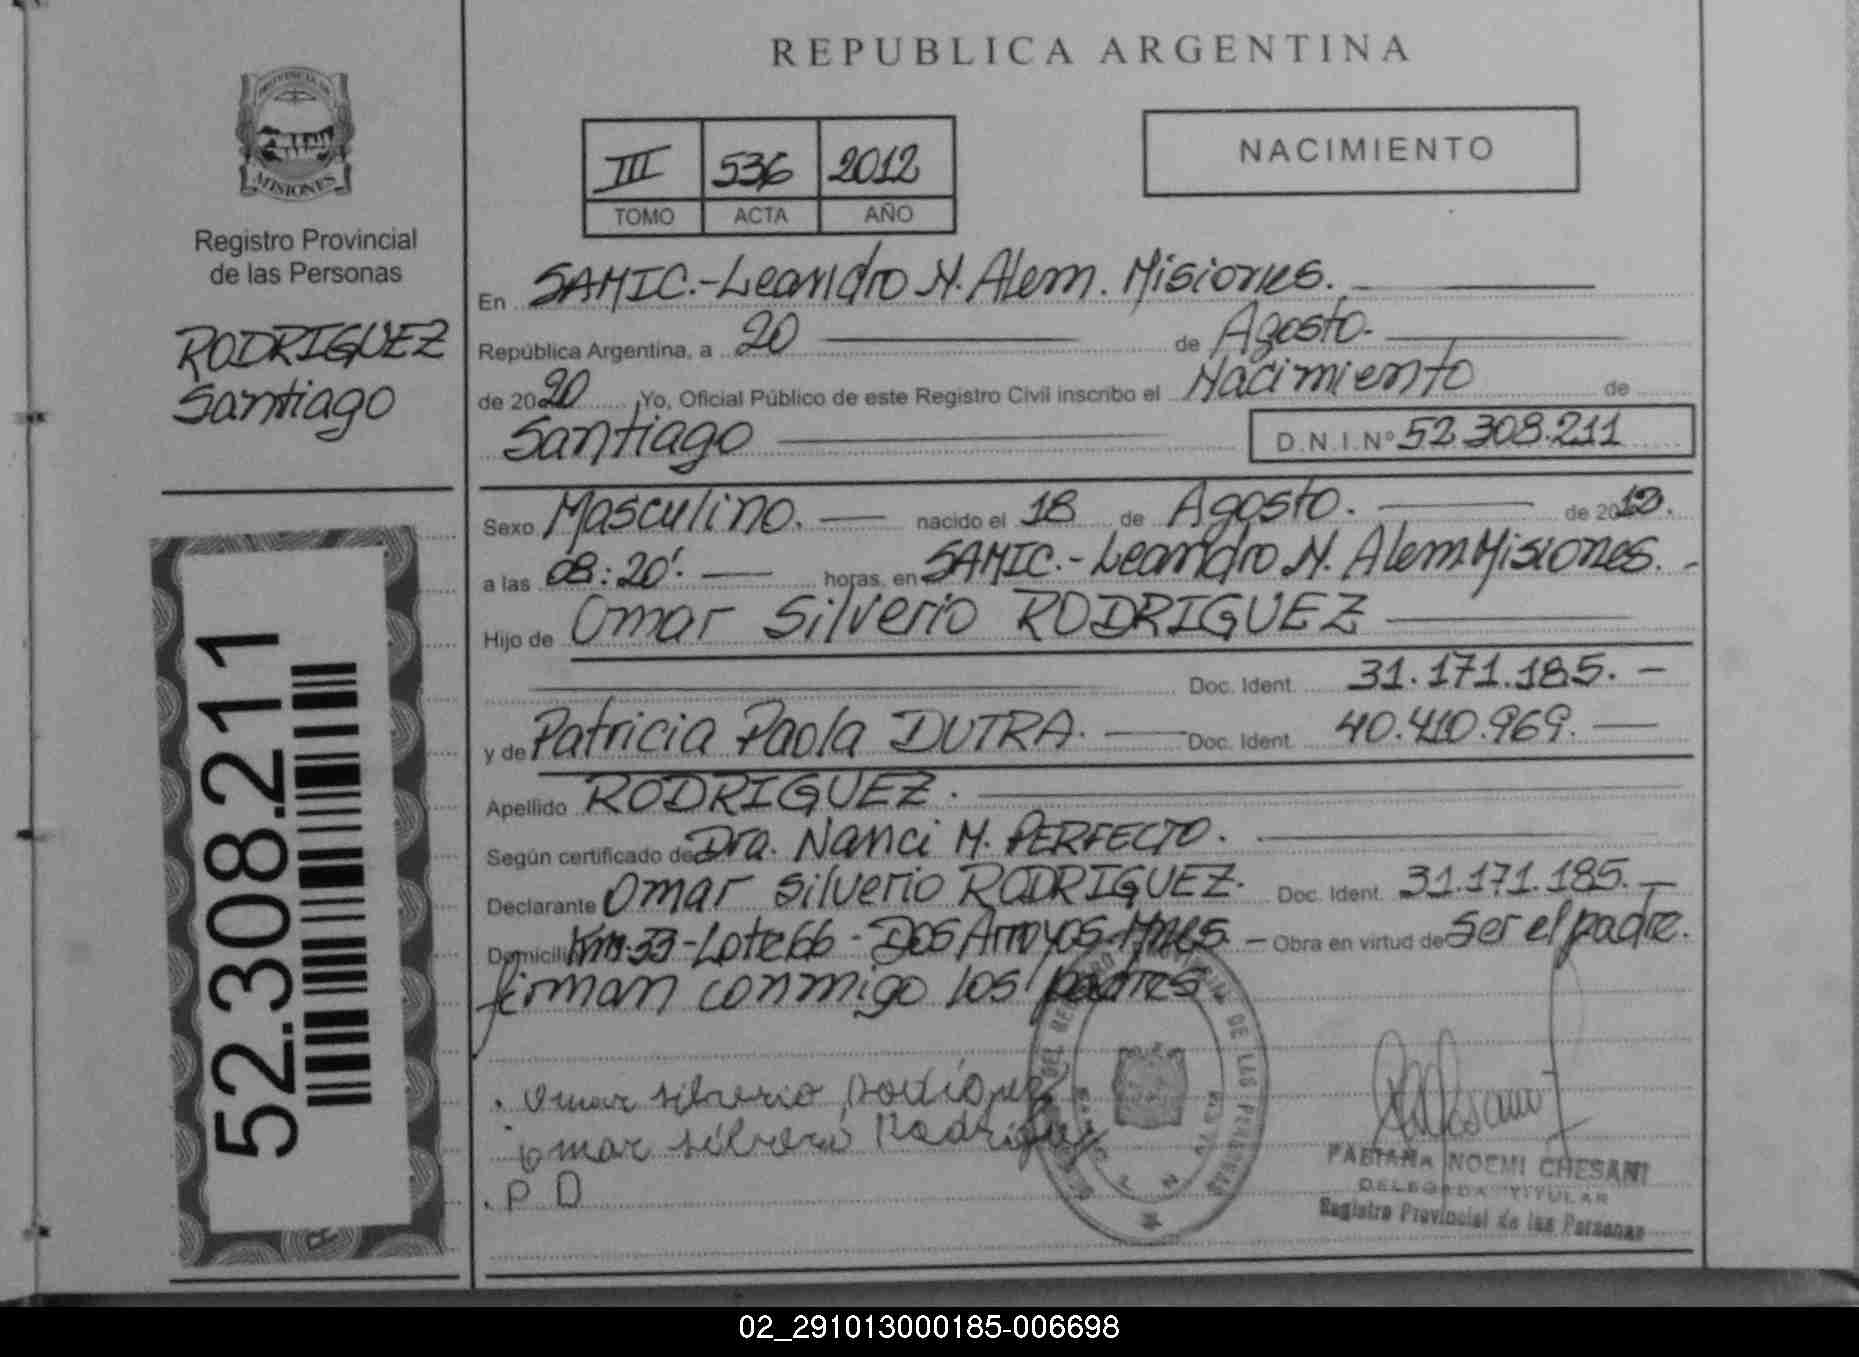 REPUBLICA ARGENTINA
PROVINCIA DE
MISIONES
Registro Provincial
de las Personas
RODRIGUEZ
Santiago
52.308.211
III 536 2012
TOMO ACTA AÑO
NACIMIENTO
En SAMIC.-Leandro N. Alem. Misiones.
República Argentina, a 20 de Agosto.
de 20 Yo, Oficial Público de este Registro Civil inscribo el Nacimiento de
Santiago D.N.I.Nº 52.308.211
Sexo Masculino. nacido el 18 de Agosto. de 2012.
a las 08:20'. horas, en SAMIC.-Leandro N. Alem Misiones.-
Hijo de Omar Silverio RODRIGUEZ
Doc. Ident. 31.171.185.-
y de Patricia Paola DUTRA. Doc. Ident. 40.410.969.
Apellido RODRIGUEZ.
Según certificado de Dra. Nanci M. PERFECTO.
Declarante Omar Silverio RODRIGUEZ. Doc. Ident. 31.171.185.-
Domicilio Km.33-Lote66-Dos Arroyos.Mnes.- Obra en virtud de Ser el padre.
firman conmigo los padres
DE LAS PERSONAS
. Omar silverio Rodríguez
Omar silverio Rodríguez
. P D
FABIANA NOEMI CHESANI
DELEGADA TITULAR
Registro Provincial de las Personas
02_291013000185-006698